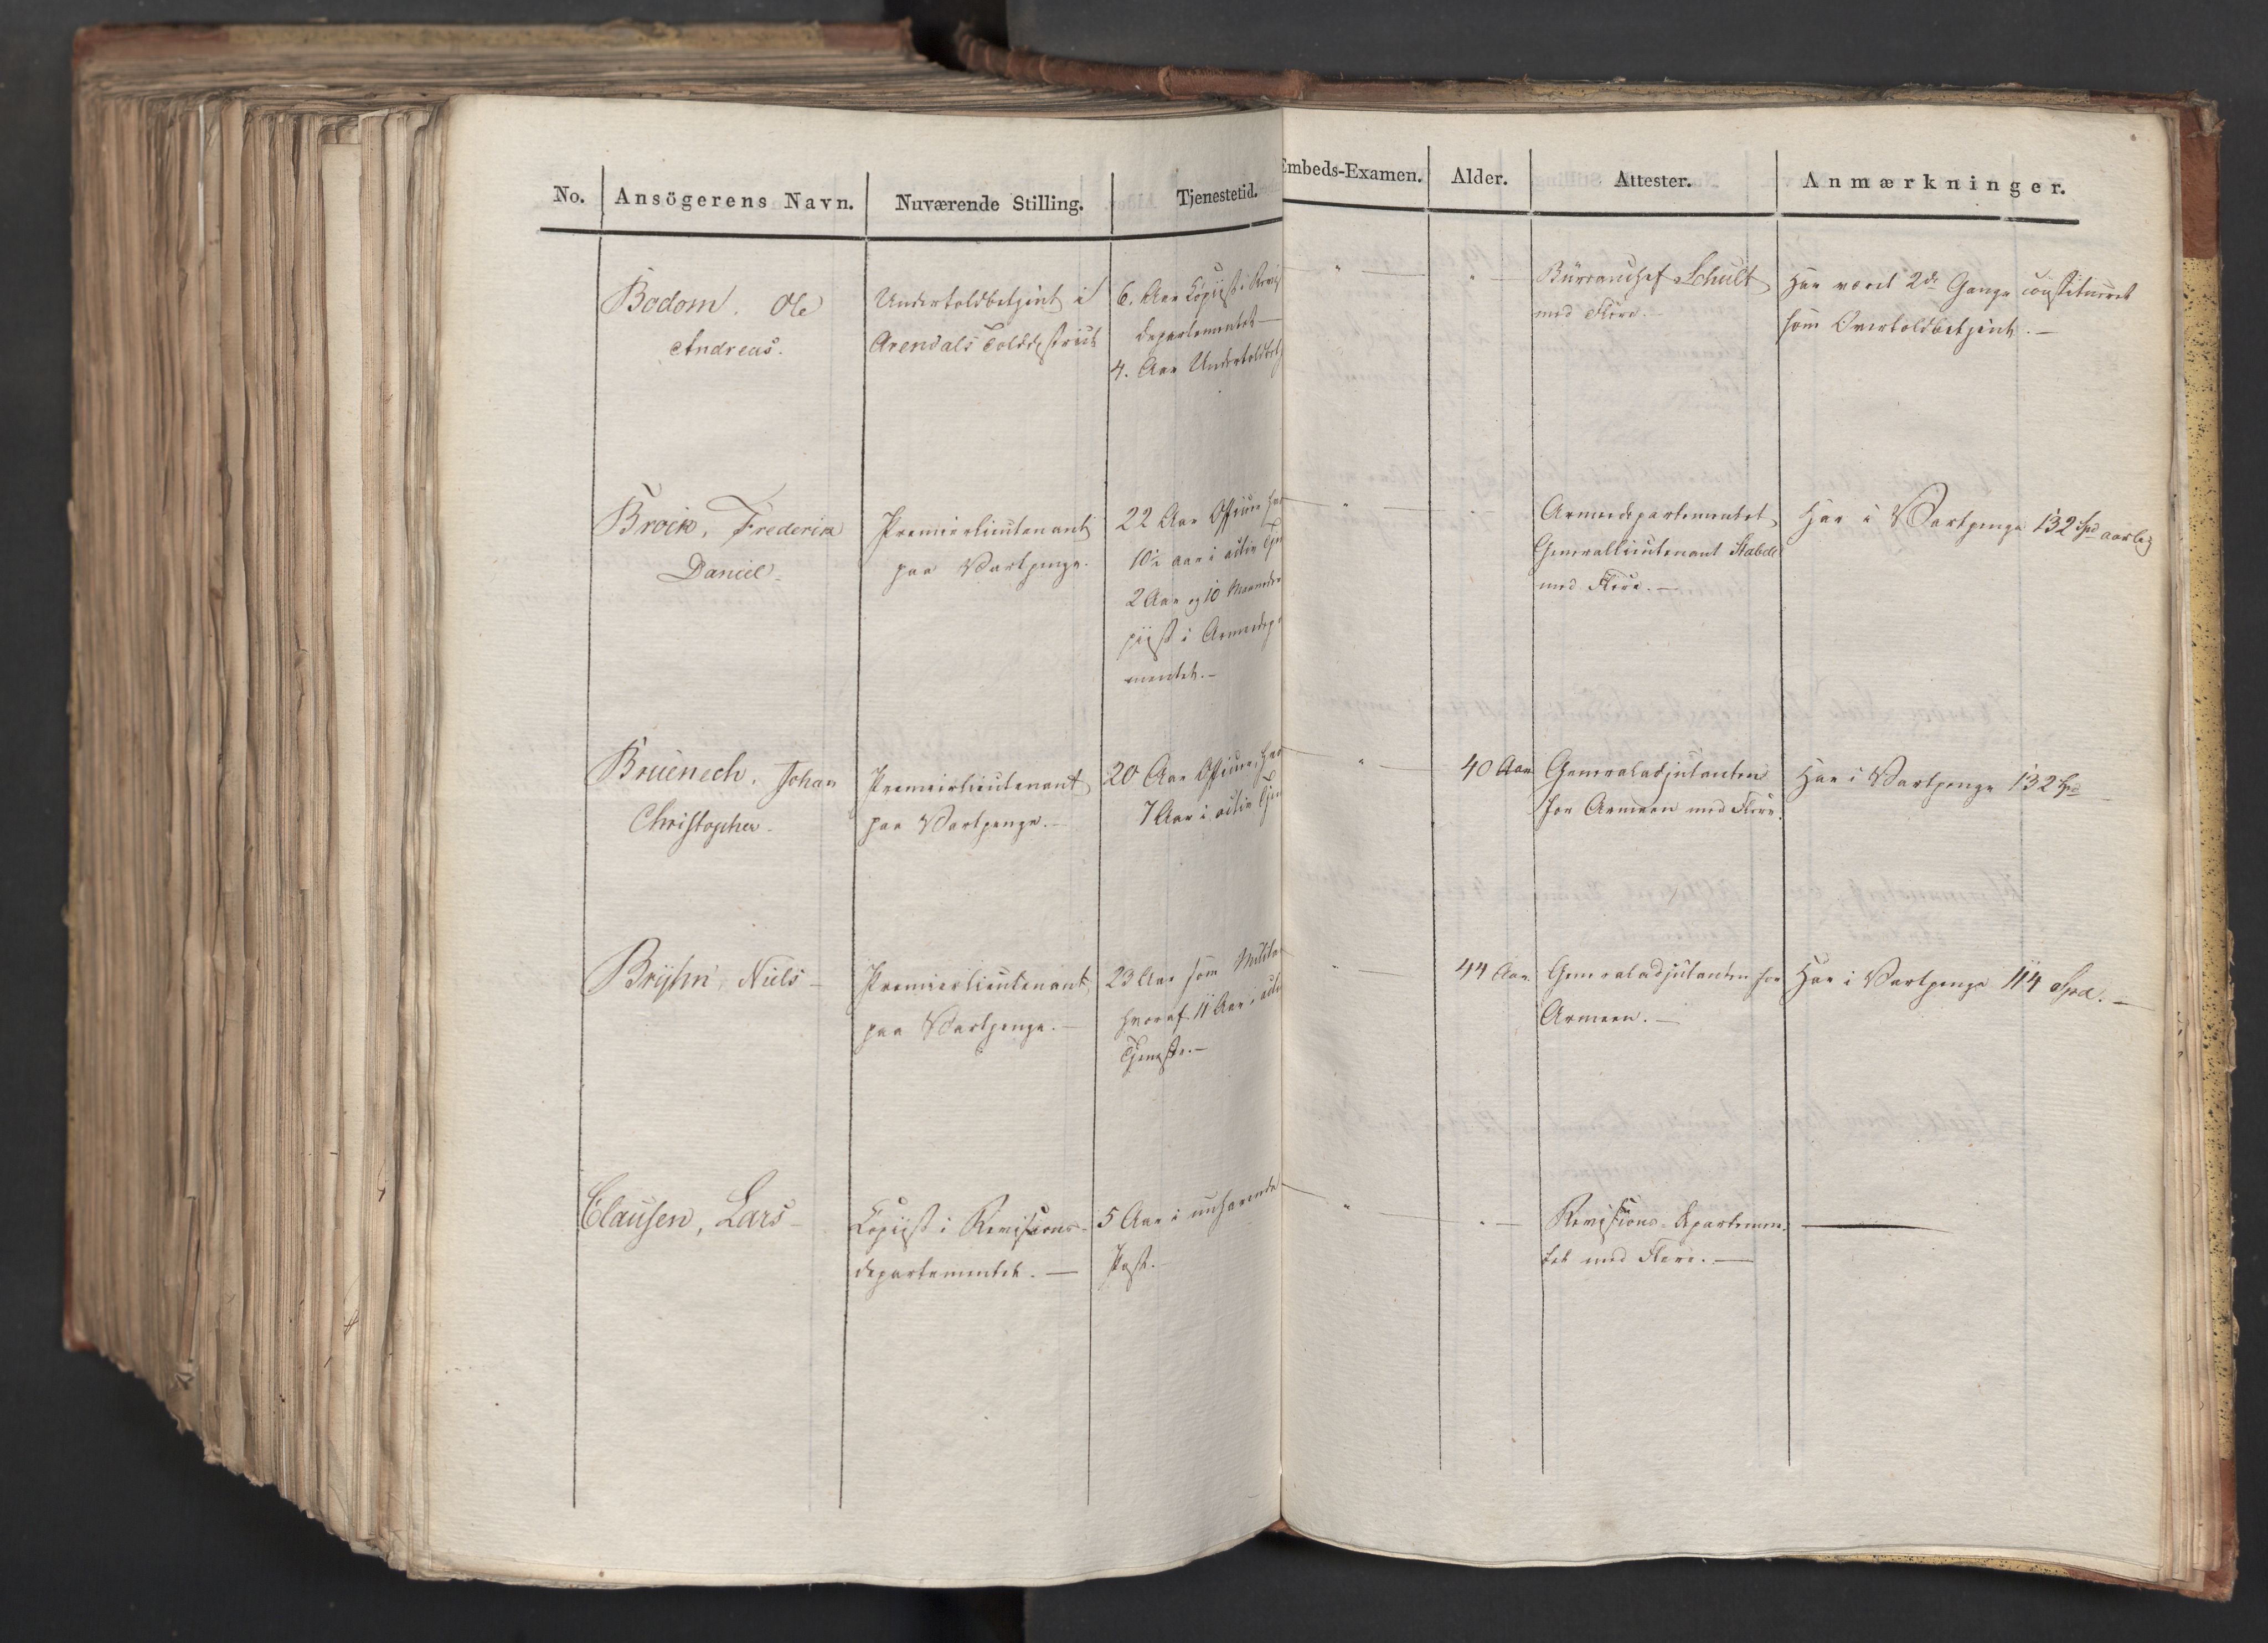 No.
Ansögerens Navn.
Nuværende Stilling.
Tjenestetid.
Embeds-Examen.
Alder.
Attester.
Anmærkninger.
Bodom, Ole
Andreas.
Undertoldbetjent i
Arendals Tolddistrict
6. Aar Copiist i Revis
departementet —
4. Aar Undertoldbetj
"
"
Büreauchef Schult
med Flere. —
Har været 2de Gange constitueret
som Overtoldbetjent. —
Broch, Frederik
Daniel.
Premierlieutenant
paa Vartpenge.
22 Aar Officier har
10½ aar i activ Tjen
2 Aar og 10 Maaneder
piist i Armeedep
mentet. —
"
"
Armeedepartementet,
Generallieutenant Stabell
med Flere. —
Har i Vartpenge 132 Spd aarlig
Bruenech, Johan
Christopher.
Premierlieutenant
paa Vartpenge. —
20 Aar Officier, har
7 Aar i activ Tjen
"
40 Aar
Generaladjutanten
for Armeen med Flere.
Har i Vartpenge 132 Spd
Bryhn, Niels —
Premierlieutenant
paa Vartpenge. —
23 Aar som Milita
hvoraf 11 Aar i acti
Tjeneste. —
"
44 Aar.
Generaladjutanten for
Armeen. —
Har i Vartpenge 114 Spd. —
Clausen, Lars —
Copiist i Revisions-
departementet. —
5 Aar i nuhavende
Post.
"
"
Revisions-Departemen-
tet med Flere. —
—